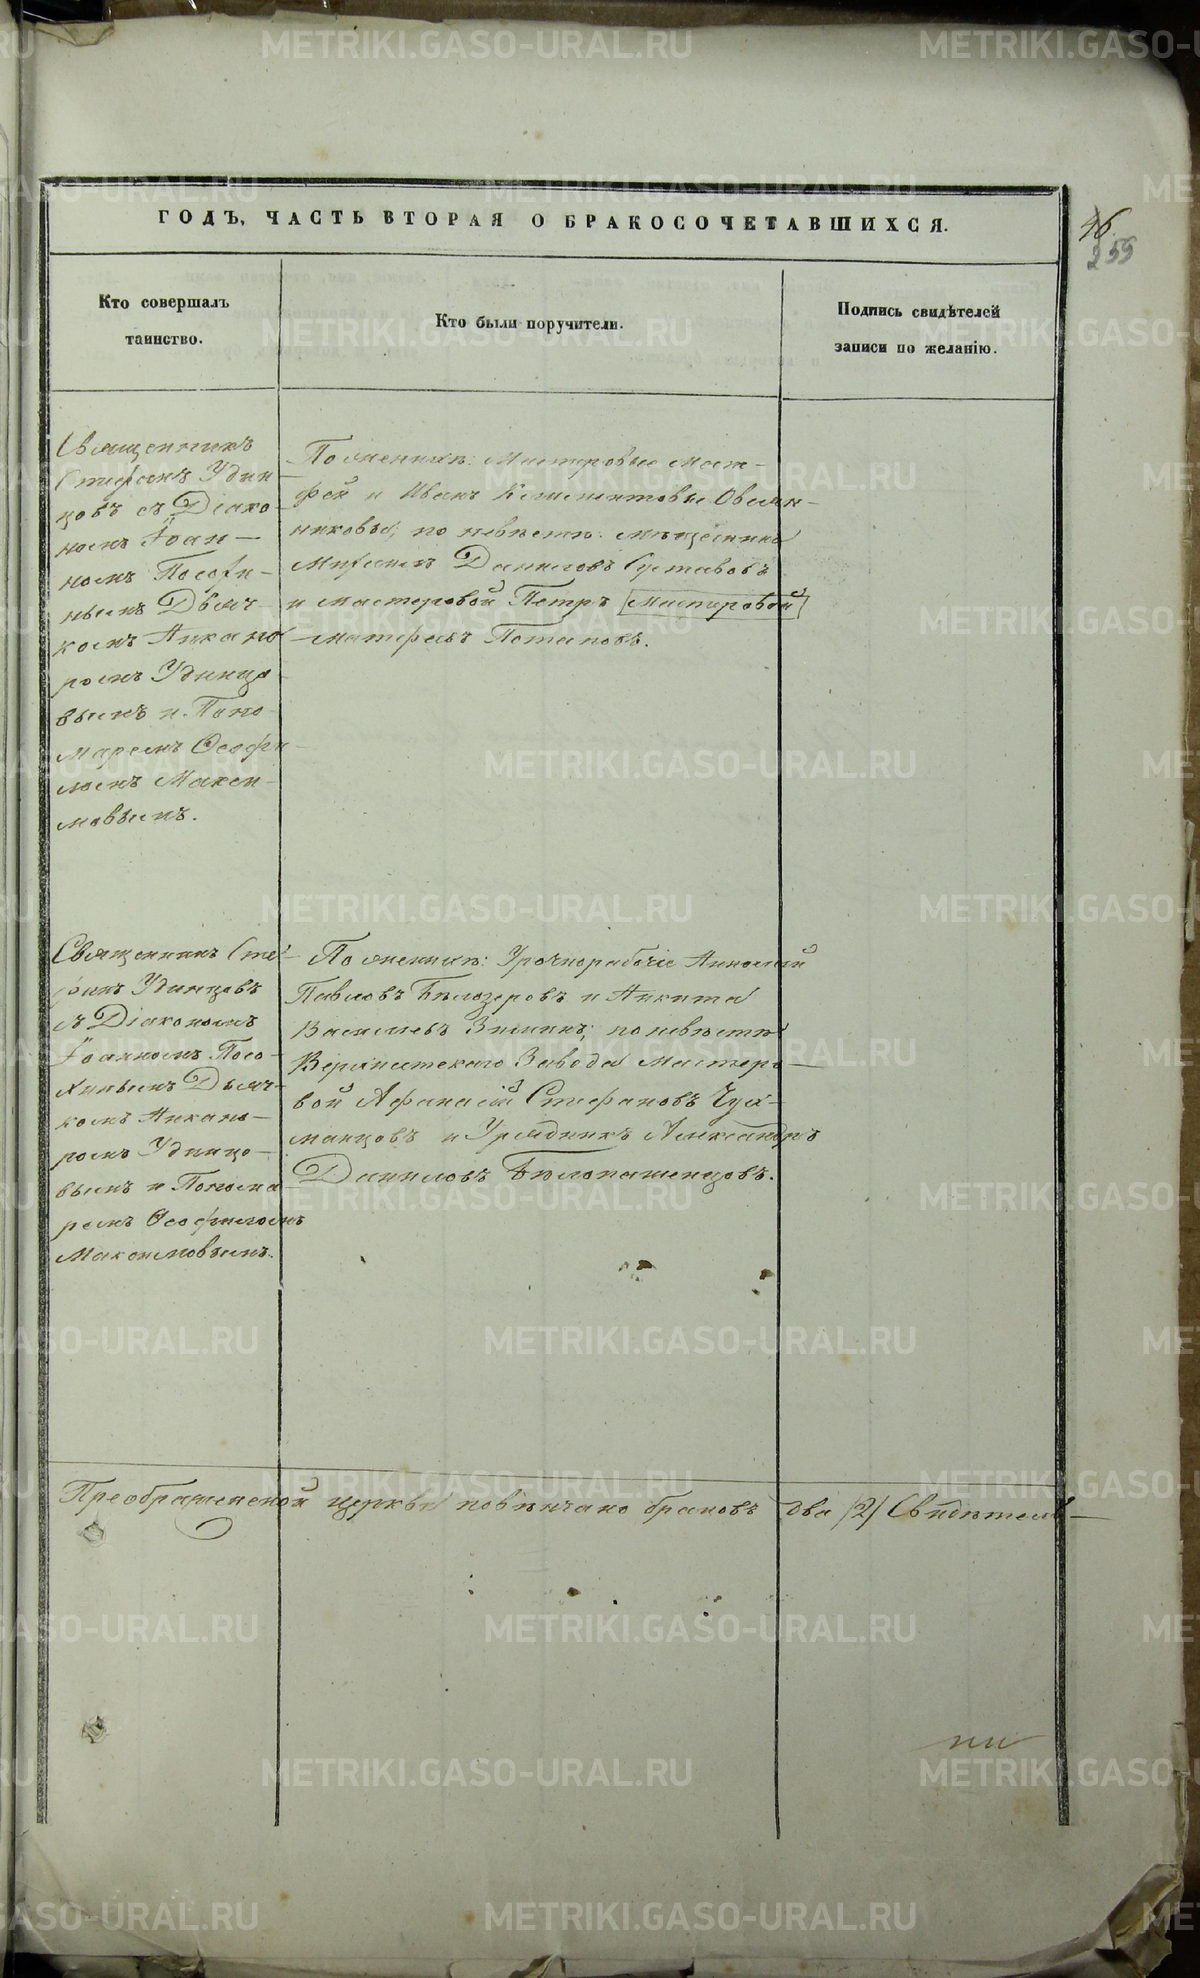 ГОДЪ, ЧАСТЬ ВТОРАЯ О БРАКОСОЧЕТАВШИХСЯ.
46
255
Кто совершалъ
таинство.
Кто были поручители.
Подпись свидѣтелей
записи по желанію.
Священникъ
Стефанъ Удин
цовъ съ Діако-
номъ Іоан-
номъ
нымъ Дьяч-
комъ Никано
ромъ Удинцо-
вымъ и Поно-
маремъ Ѳеофи-
ломъ Макси-
мовымъ.
По женихѣ: Мастеровые Мат-
фей и Иванъ Овсян-
никовы; по невѣстѣ: мѣщанинъ
Даниловъ
и мастеровой Петръ мастеровой
Матфеевъ Потаповъ.
Священникъ Сте-
фанъ Удинцовъ
съ Діакономъ
Іоанномъ
Дьяч-
комъ Никано-
ромъ Удинцо-
вымъ и Понома
ремъ Ѳеофиломъ
Максимовымъ.
По женихѣ: Урочнорабочіе
Павловъ Бѣлозеровъ и Никита
Васильевъ Зиминъ; по невѣстѣ
Верхисетскаго Завода Мастеро-
вой Афанасій Стефановъ
и Урядникъ Александръ
Даниловъ Бѣлопашенцовъ.
Преображенской церкви повѣнчано браковъ два /2/ Свидѣтель-
METRIKI.GASO-URAL.RU